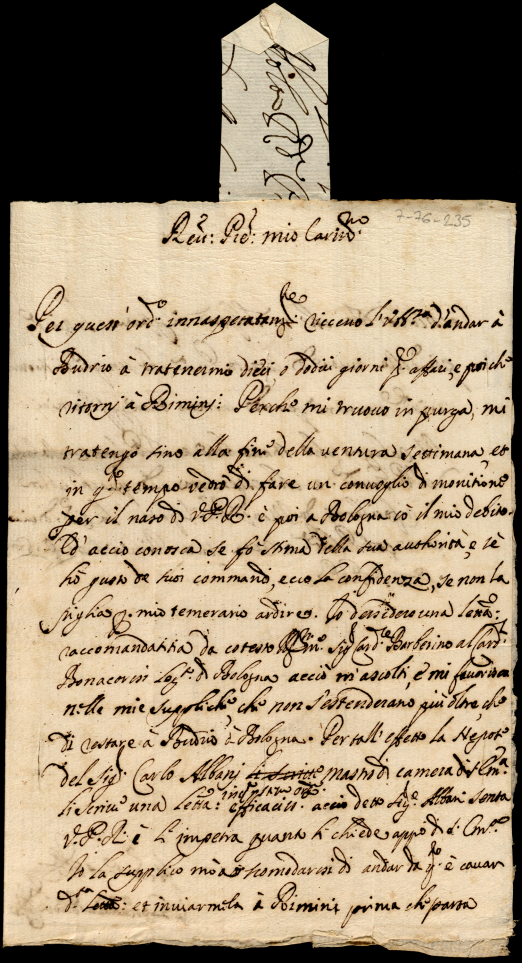 7-76-235
Reu: Pre: mio Cariss.mo
Per quest' ord.e innaspetatam.te riceuo d'andar à
Budrio à tratenermi dieci o dodici giorni p. affari, e poi che
ritorni à Rimini: Perche mi truouo in purga, mi
tratengo sino alla fine della ventura settimana, et
in q.to tempo vedrò di fare un conuoglio di monitione
per il naso di V.P.R. è poi a Bologna cò il mio debito.
Ed' acciò conosca se fò stima della sua authorità, e se
hò gusto de suoi commandi, ecco la confidenza, se non la
piglia p. mio temerario ardire. Io desidero una lett.a:
raccomandatitia da cotesto Sig. Card.le Barberino al Card.
Bonacorsi Leg.to di Bologna acciò m'ascolti, e mi fauorisca
nelle mie suppliche che non s'estenderano più oltre, che
di restare à Budrio ò Bologna. Per tall' effetto la Nepote
del Sig. Carlo Albani li scriue mastro di camera di S. Em.za
li scriue una lettà: efficaciss. acciò detto Sig. Albani senta
V.P.R. è l' impetra quant li chiede appò di d. Em.za
Io la supplico mò a scomodarsi di andar da q. è cauar
d.ta lett.: et inuiarmela à Rimini prima che parta